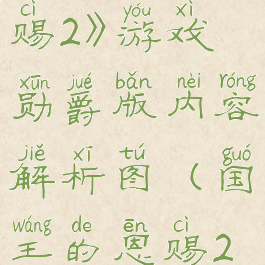 cì yóu xì
赐2》游戏
xūn jué bǎn nèi róng
勋爵版内容
jiě xī tú guó
解析图（国
wáng de ēn cì
王的恩赐2